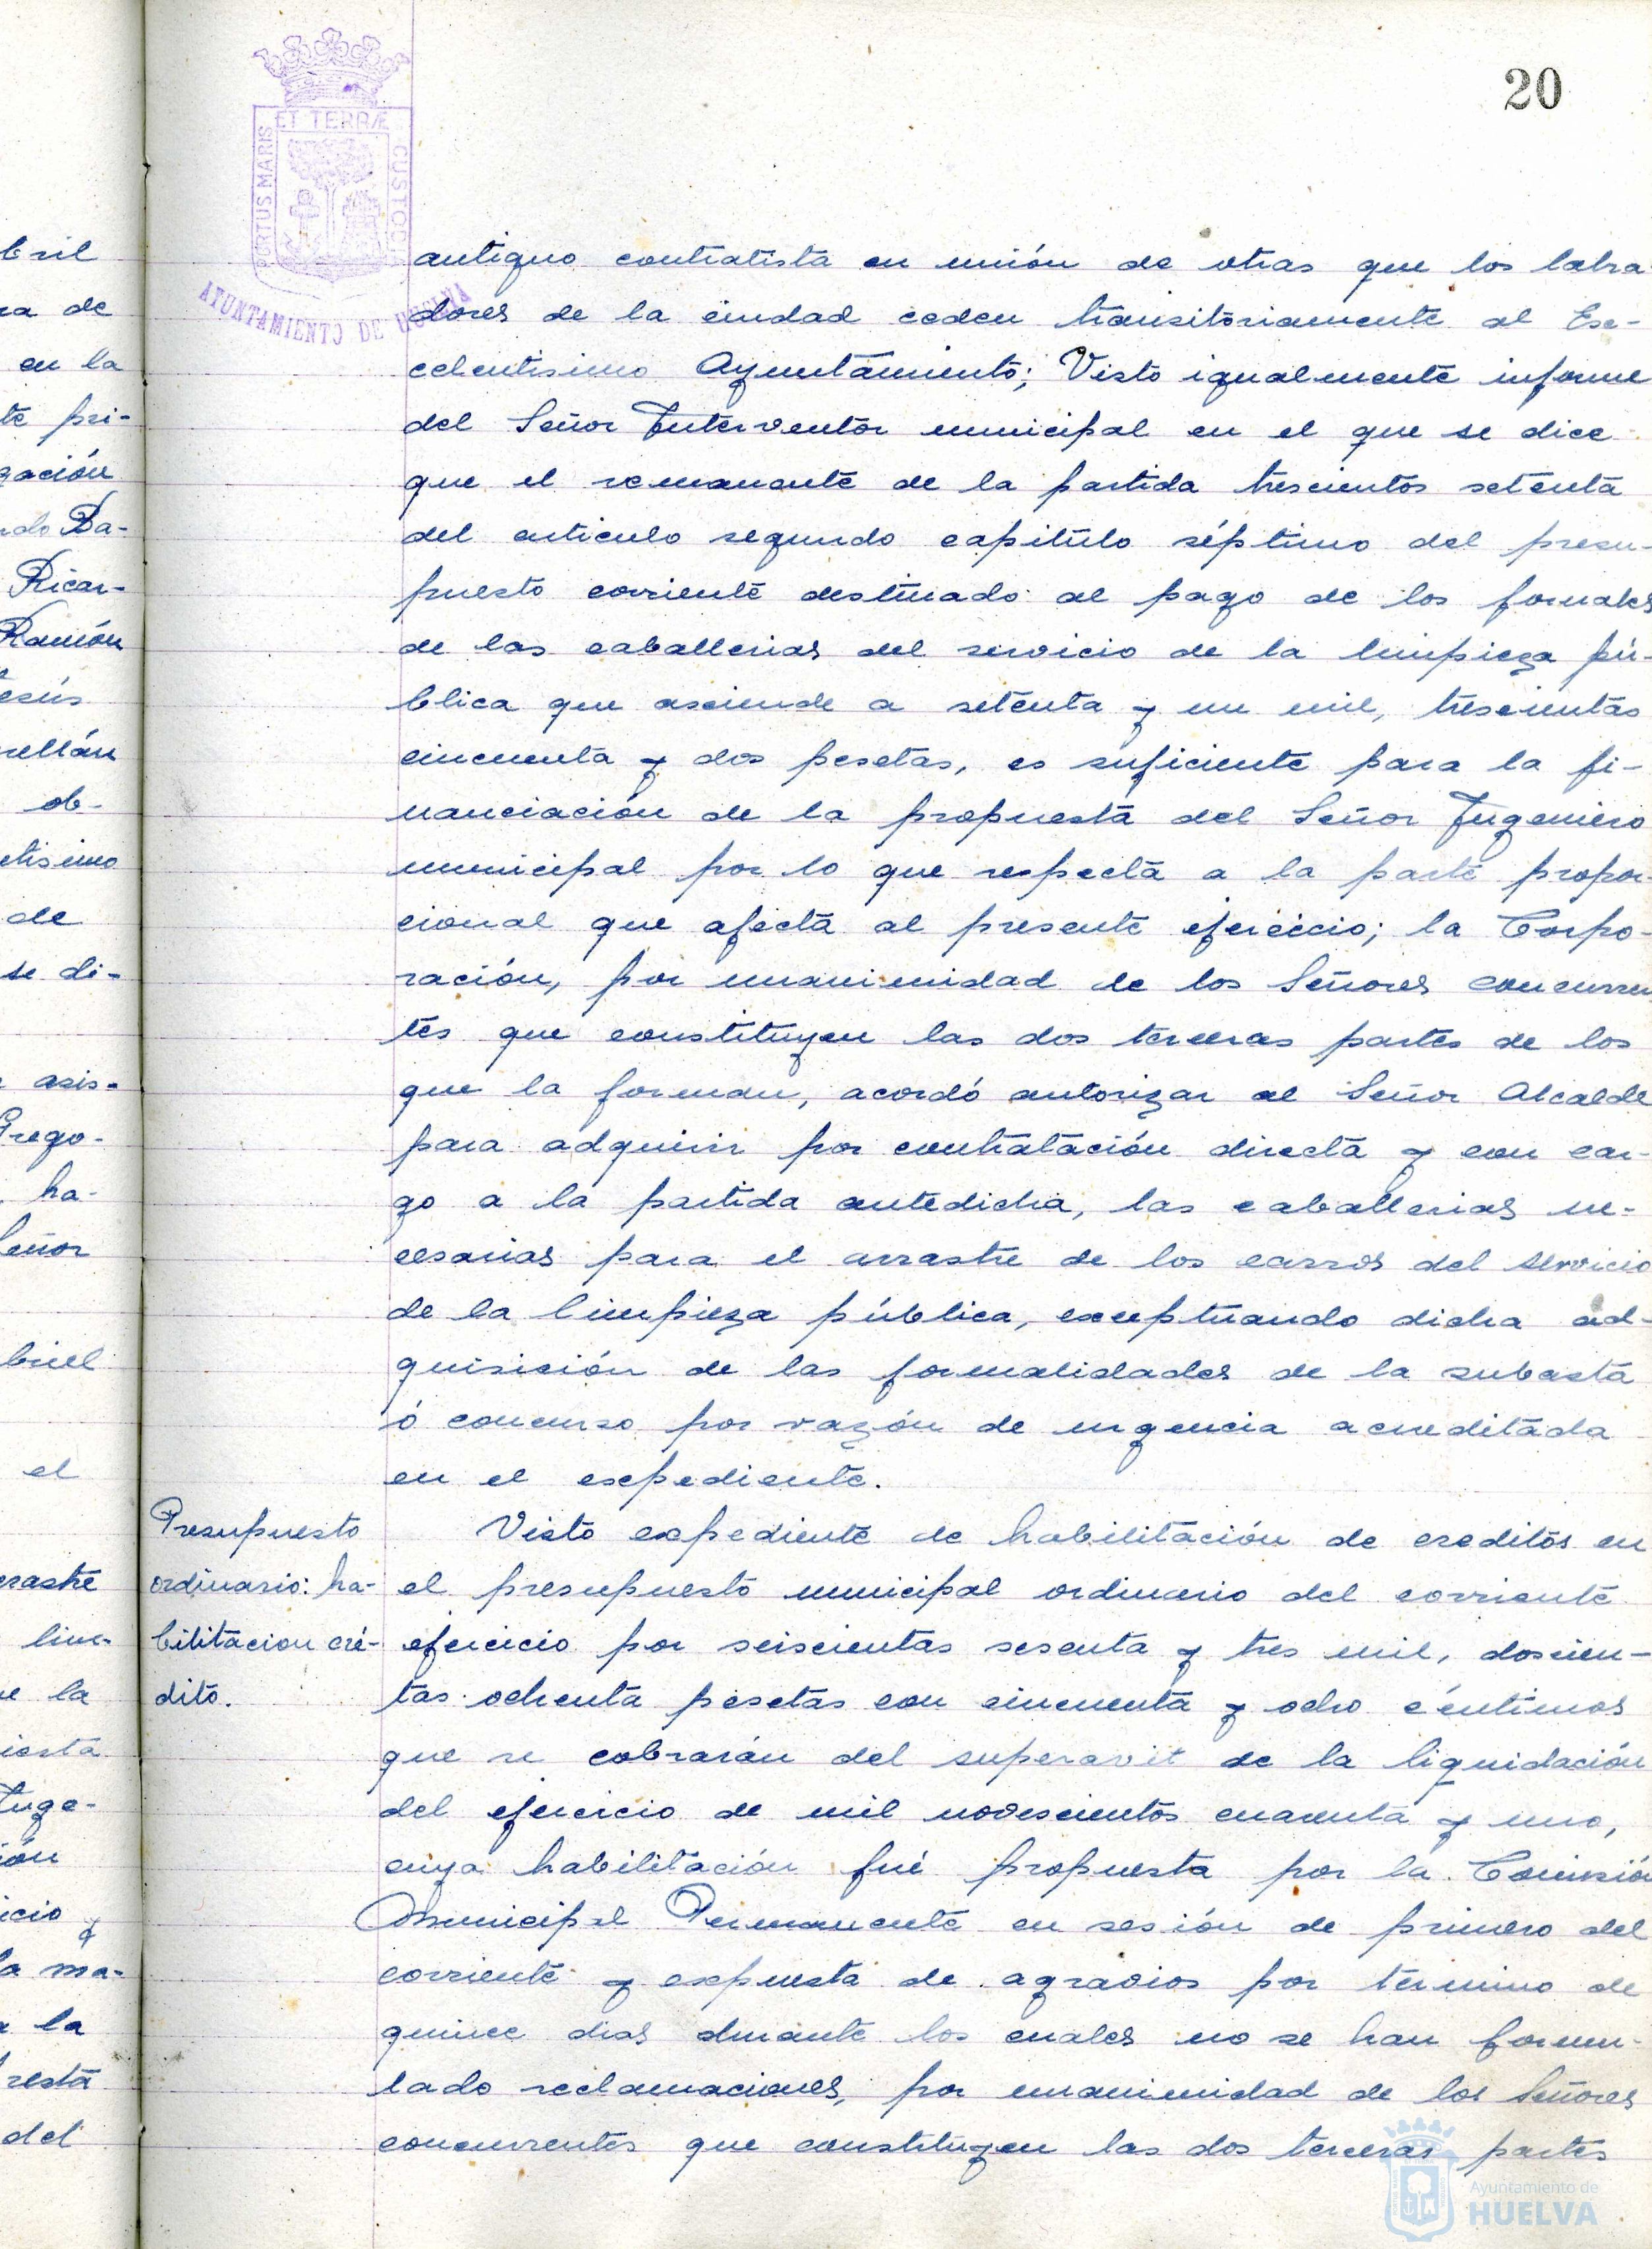 20
PORTUS MARIS
ET TERRÆ
CUSTODI
AYUNTAMIENTO DE HUELVA
bril
ra de
en la
te pri-
gación
rdo Ba-
Ricar-
Ramón
esús
rellán
ob-
tisimo
de
se di-
asis-
Grego-
ha-
Señor
briel
el
rrastre
lim-
e la
iesta
Inge-
ión
icio y
la ma-
a la
resta
del
antiguo contratista en unión de otras que los labra
dores de la ciudad ceden transitoriamente al Exc-
celentisimo Ayuntamiento; Visto igualmente informe
del Señor Interventor municipal en el que se dice
que el remanente de la partida trescientos setenta
del articulo segundo capitulo séptimo del presu-
puesto corriente destinado al pago de los jornales
de las caballerias del servicio de la limpieza pú-
blica que asciende a setenta y un mil, trescientas
cincuenta y dos pesetas, es suficiente para la fi-
nanciación de la propuesta del Señor Ingeniero
municipal por lo que respecta a la parte propor-
cional que afecta al presente ejercicio; la Corpo-
ración, por unanimidad de los Señores concurren
tes que constituyen las dos terceras partes de los
que la forman, acordó autorizar al Señor Alcalde
para adquirir por contratación directa y con car-
go a la partida antedicha, las caballerias ne-
cesarias para el arrastre de los carros del servicio
de la limpieza pública, exceptuando dicha ad-
quisición de las formalidades de la subasta
ó concurso por razón de urgencia acreditada
en el expediente.
Presupuesto
ordinario: ha-
bilitacion cré-
dito.
Visto expediente de habilitación de creditos en
el presupuesto municipal ordinario del corriente
ejercicio por seiscientas sesenta y tres mil, doscien-
tas ochenta pesetas con cincuenta y ocho céntimos
que se cobrarán del superavit de la liquidación
del ejercicio de mil novescientos cuarenta y uno,
cuya habilitación fué propuesta por la Comisión
Municipal Permanente en sesión de primero del
corriente y expuesta de agravios por termino de
quince dias durante los cuales no se han formu-
lado reclamaciones, por unanimidad de los Señores
concurrentes que constituyen las dos terceras partes
Ayuntamiento de
HUELVA